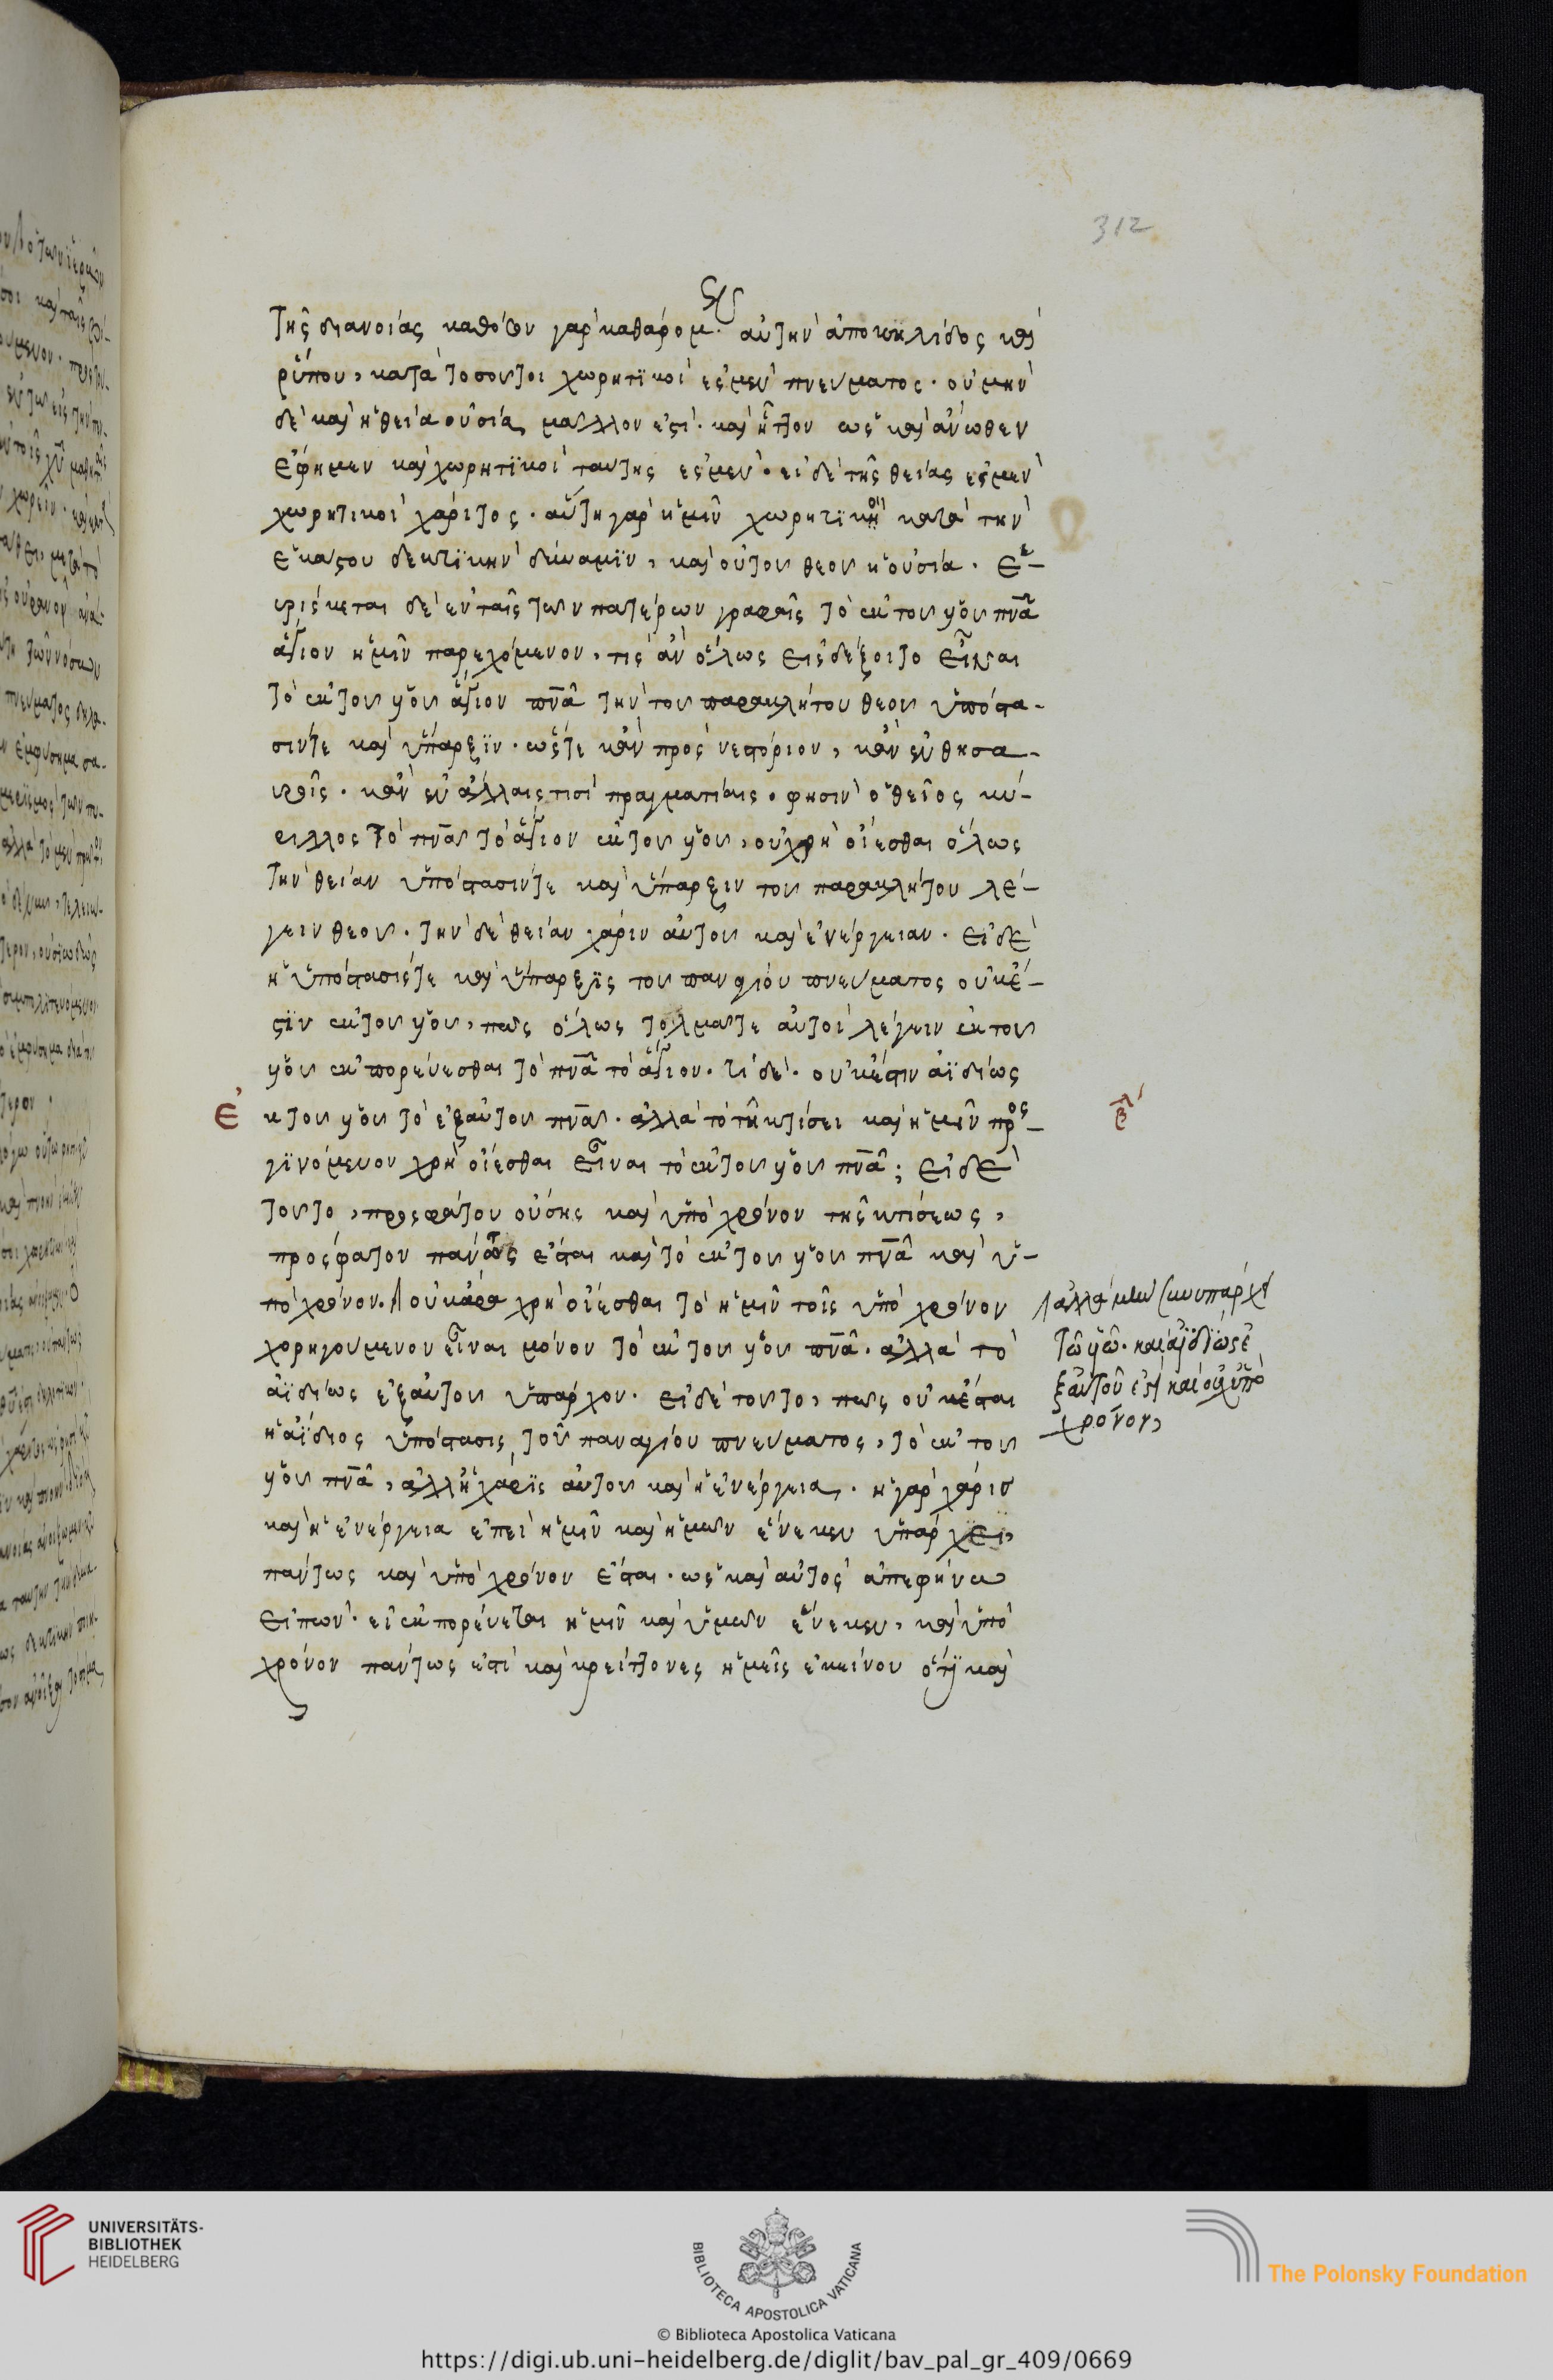 312
τῆς διανοίας καθόσον γὰρ καθάρομεν αὐτὴν ἀποκηλίδος καὶ
ρύπου, κατὰ τοσοῦτοι χωρητϊκοὶ ἐσμὲν πνεύματος. οὐ μὴν
δὲ καὶ ἡ θεία οὐσία μᾶλλον ἐστὶ. καὶ ἧττον ὡς καὶ ἄνωθεν
ἔφημεν καὶ χωρητϊκοὶ ταύτης ἐσμὲν. εἰ δὲ τῆς θείας ἐσμὲν
χωρητικοὶ χάριτος. αὕτη γὰρ ἡμῖν χωρητϊκὴ κατὰ τὴν
ἑκάστου δεκτϊκὴν δύναμϊν, καὶ οὐ τοῦ θεοῦ ἡ οὐσία. εὑ-
ρίσκεται δὲ ἐν ταῖς τῶν πατέρων γραφαῖς τὸ ἐκ τοῦ υἱοῦ πνᾶ
ἅγιον ἡμῖν παρεχόμενον, τίς ἂν ὅλως εἰσδέξοιτο εἶναι
τὸ ἐκ τοῦ υἱοῦ ἅγιον πνᾶ τὴν τοῦ παρακλήτου θεοῦ ὑπόστα-
σιν τὲ καὶ ὕπαρξϊν. ὥστε κἂν πρὸς νεστόριον, κἂν ἐν θησα-
υροῖς. κἂν ἐν ἄλλαις τισὶ πραγματίαις. φησὶν ὁ θεῖος κύ-
ριλλος τὸ πνᾶ τὸ ἅγιον ἐκ τοῦ υἱοῦ, οὐ χρὴ οἴεσθαι ὅλως
τὴν θείαν ὑπόστασιν τὲ καὶ ὕπαρξιν τοῦ παρακλήτου λέ-
γειν θεοῦ. τὴν δὲ θείαν χάριν αὐτοῦ καὶ ἐνέργειαν. εἰ δὲ
ἡ ὑπόστασις τὲ καὶ ὕπαρξϊς τοῦ παναγίου πνεύματος οὐκ ἔ-
στϊν ἐκ τοῦ υἱοῦ, πῶς ὅλως τολμᾶτε αὐτοὶ λέγειν ἐκ τοῦ
υἱοῦ ἐκπορεύεσθαι τὸ πνᾶ τὸ ἅγιον. τί δὲ. οὐκ ἔστιν ἀϊδίως
Ἐκ τοῦ υἱοῦ τὸ ἐξ αὐτοῦ πνᾶ. ἀλλὰ τὸ τῆ κτίσει καὶ ἡμῖν προς-
γϊνόμενον χρὴ οἴεσθαι εἶναι τὸ ἐκ τοῦ υἱοῦ πνᾶ; εἰ δὲ
τοῦτο, προσφάτου οὔσης καὶ ὑπὸ χρόνον τῆς κτίσεως,
πρόσφατον πάντως ἔσται καὶ τὸ ἐκ τοῦ υἱοῦ πνᾶ καὶ ὑ-
πὸ χρόνον. οὐκ ἄρα χρὴ οἴεσθαι τὸ ἡμῖν τοῖς ὑπὸ χρόνον
χορηγούμενον εἶναι μόνον τὸ ἐκ τοῦ υἱοῦ πνᾶ. ἀλλὰ τὸ
ἀϊδίως ἐξ αὐτοῦ ὑπάρχον. εἰ δὲ τοῦτο, πῶς οὐκ ἔσται
ἡ ἀΐδιος ὑπόστασις τοῦ παναγίου πνεύματος, τὸ ἐκ τοῦ
υἱοῦ πνᾶ, ἀλλ' ἡ χάρϊς αὐτοῦ καὶ ἡ ἐνέργεια. ἡ γὰρ χάρις
καὶ ἡ ἐνέργεια ἐπεὶ ἡμῖν καὶ ἡμῶν ἕνεκεν ὑπάρχει,
πάντως καὶ ὑπὸ χρόνον ἔσται. ὡς καὶ αὐτὸς ἀπεφήνω
εἰπὼν. εἰ ἐκπορεύεται ἡμῖν καὶ ὑμῶν ἕνεκεν, καὶ ὑπὸ
χρόνον πάντως ἐστὶ καὶ κρείττονες ἡμεῖς ἐκείνου ὅτϊ καὶ
ἀλλὰ μὴν συνυπάρχει
τῶ υἱῶ. καὶ ἀϊδίως ἐ
ξ αὐτοῦ ἐστὶ καὶ οὐχ ὑπὸ
χρόνον,
UNIVERSITÄTS-
BIBLIOTHEK
HEIDELBERG
BIBLIOTECA APOSTOLICA VATICANA
The Polonsky Foundation
© Biblioteca Apostolica Vaticana
https://digi.ub.uni-heidelberg.de/diglit/bav_pal_gr_409/0669